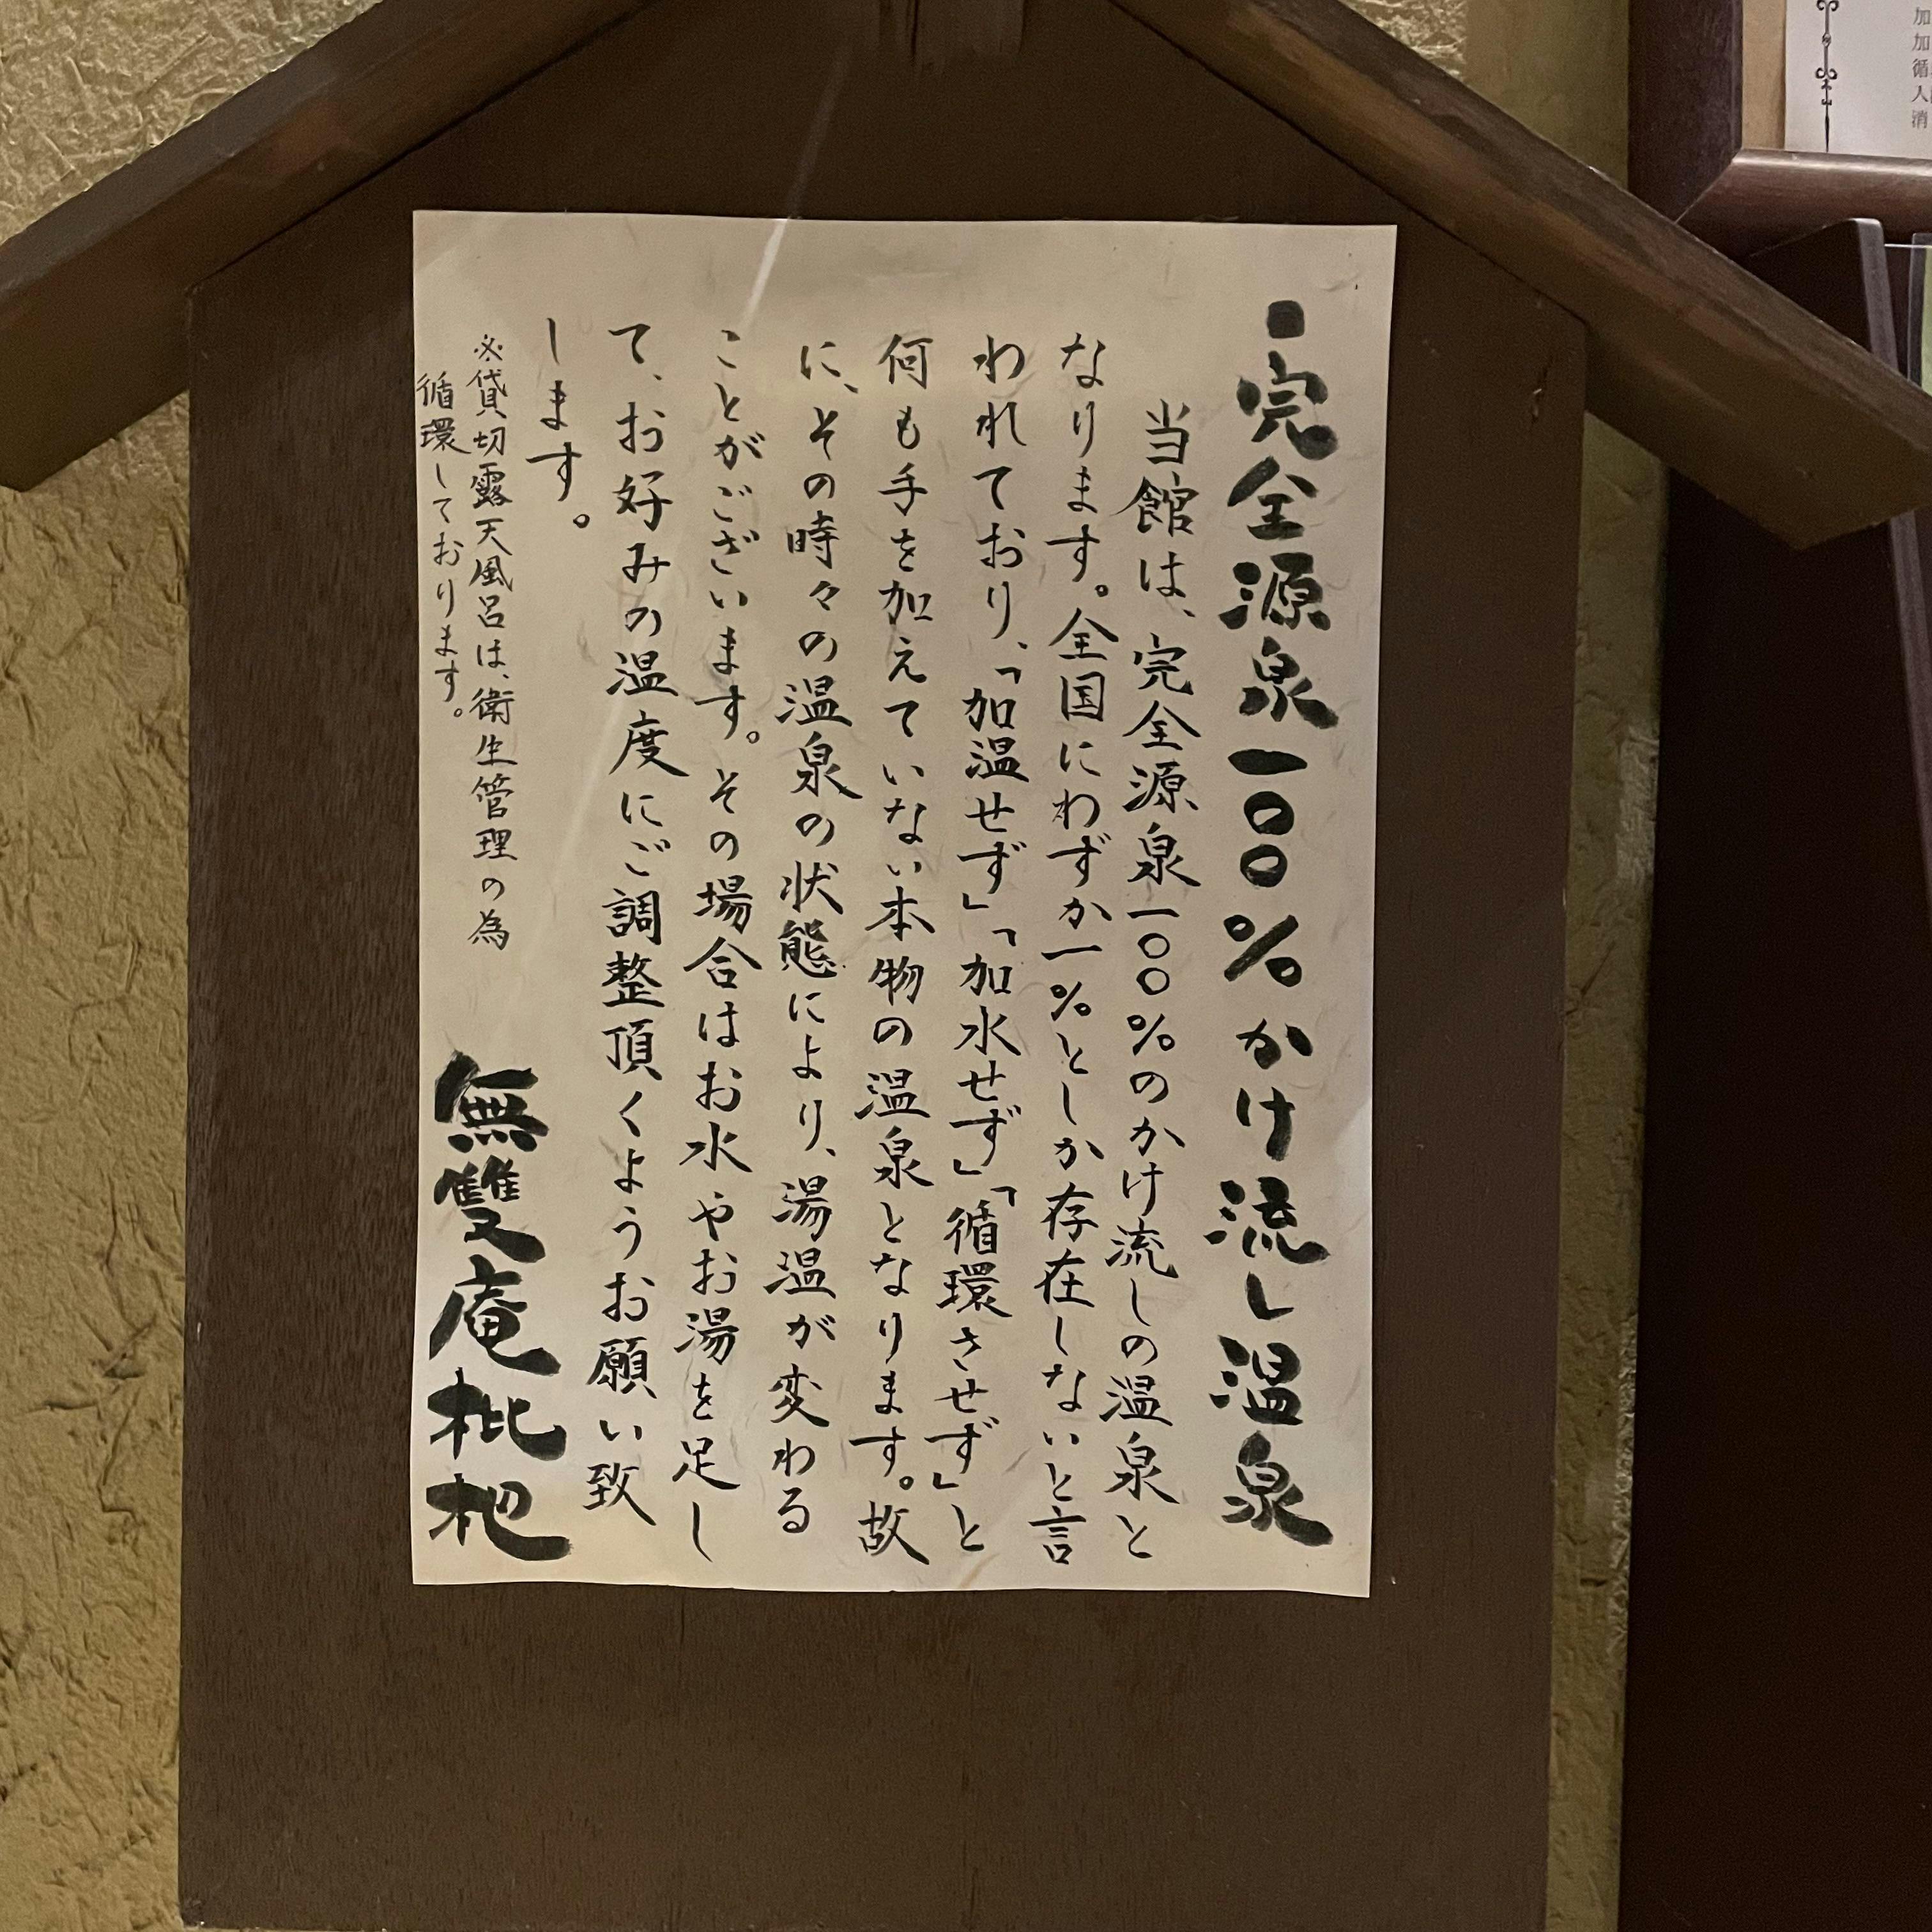 ・完全源泉一〇〇％かけ流し温泉
当館は、完全源泉一〇〇％のかけ流しの温泉と
なります。全国にわずか一％としか存在しないと言
われており、「加温せず」「加水せず」「循環させず」と
何も手を加えていない本物の温泉となります。故
に、その時々の温泉の状態により、湯温が変わる
ことがございます。その場合はお水やお湯を足し
て、お好みの温度にご調整頂くようお願い致
します。
※貸切露天風呂は、衛生管理の為
循環しております。
無雙庵枇杷
加
加
循
人
消